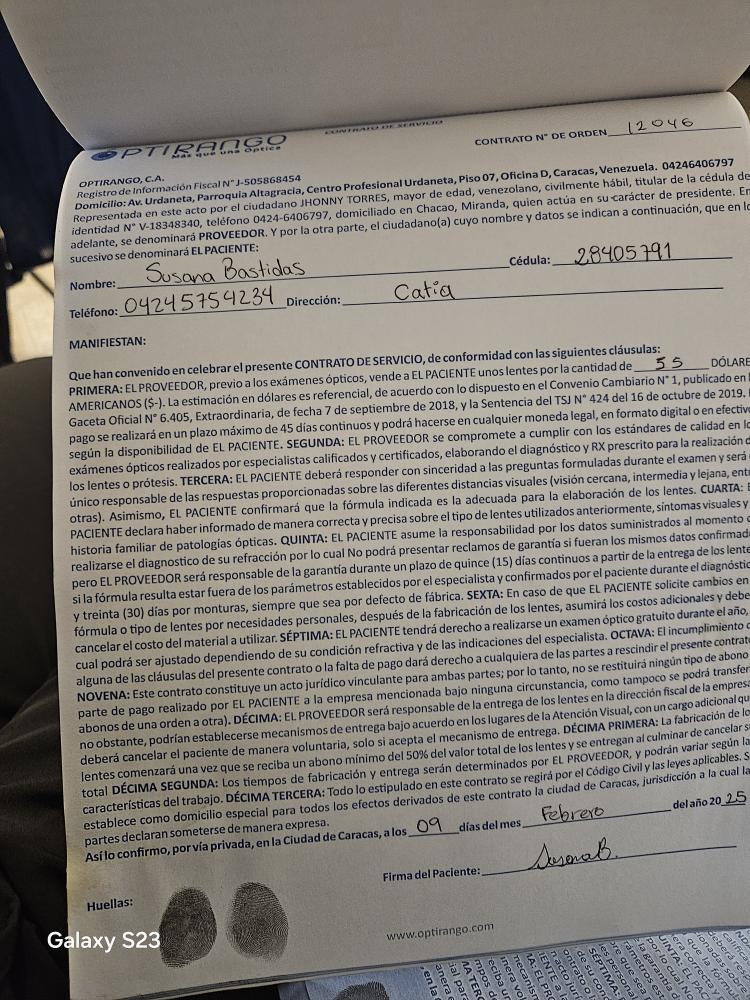 OPTIRANGO
Más que una Óptica
CONTRATO DE SERVICIO
CONTRATO N° DE ORDEN 12046
OPTIRANGO, C.A.
Registro de Información Fiscal N° J-505868454
Domicilio: Av. Urdaneta, Parroquia Altagracia, Centro Profesional Urdaneta, Piso 07, Oficina D, Caracas, Venezuela. 04246406797
Representada en este acto por el ciudadano JHONNY TORRES, mayor de edad, venezolano, civilmente hábil, titular de la cédula de
identidad N° V-18348340, teléfono 0424-6406797, domiciliado en Chacao, Miranda, quien actúa en su carácter de presidente. En
adelante, se denominará PROVEEDOR. Y por la otra parte, el ciudadano(a) cuyo nombre y datos se indican a continuación, que en lo
sucesivo se denominará EL PACIENTE:
Nombre: Susana Bastidas Cédula: 28405791
Teléfono: 04245754234 Dirección: Catia
MANIFIESTAN:
Que han convenido en celebrar el presente CONTRATO DE SERVICIO, de conformidad con las siguientes cláusulas:
PRIMERA: EL PROVEEDOR, previo a los exámenes ópticos, vende a EL PACIENTE unos lentes por la cantidad de 55 DÓLARE
AMERICANOS ($-). La estimación en dólares es referencial, de acuerdo con lo dispuesto en el Convenio Cambiario N° 1, publicado en
Gaceta Oficial N° 6.405, Extraordinaria, de fecha 7 de septiembre de 2018, y la Sentencia del TSJ N° 424 del 16 de octubre de 2019.
pago se realizará en un plazo máximo de 45 días continuos y podrá hacerse en cualquier moneda legal, en formato digital o en efectivo
según la disponibilidad de EL PACIENTE. SEGUNDA: EL PROVEEDOR se compromete a cumplir con los estándares de calidad en lo
exámenes ópticos realizados por especialistas calificados y certificados, elaborando el diagnóstico y RX prescrito para la realización d
los lentes o prótesis. TERCERA: EL PACIENTE deberá responder con sinceridad a las preguntas formuladas durante el examen y será
único responsable de las respuestas proporcionadas sobre las diferentes distancias visuales (visión cercana, intermedia y lejana, entr
otras). Asimismo, EL PACIENTE confirmará que la fórmula indicada es la adecuada para la elaboración de los lentes. CUARTA: E
PACIENTE declara haber informado de manera correcta y precisa sobre el tipo de lentes utilizados anteriormente, síntomas visuales y
historia familiar de patologías ópticas. QUINTA: EL PACIENTE asume la responsabilidad por los datos suministrados al momento d
realizarse el diagnostico de su refracción por lo cual No podrá presentar reclamos de garantía si fueran los mismos datos confirmad
pero EL PROVEEDOR será responsable de la garantía durante un plazo de quince (15) días continuos a partir de la entrega de los lente
si la fórmula resulta estar fuera de los parámetros establecidos por el especialista y confirmados por el paciente durante el diagnóstic
y treinta (30) días por monturas, siempre que sea por defecto de fábrica. SEXTA: En caso de que EL PACIENTE solicite cambios en
fórmula o tipo de lentes por necesidades personales, después de la fabricación de los lentes, asumirá los costos adicionales y debe
cancelar el costo del material a utilizar. SÉPTIMA: EL PACIENTE tendrá derecho a realizarse un examen óptico gratuito durante el año,
cual podrá ser ajustado dependiendo de su condición refractiva y de las indicaciones del especialista. OCTAVA: El incumplimiento d
alguna de las cláusulas del presente contrato o la falta de pago dará derecho a cualquiera de las partes a rescindir el presente contrato
NOVENA: Este contrato constituye un acto jurídico vinculante para ambas partes; por lo tanto, no se restituirá ningún tipo de abono
parte de pago realizado por EL PACIENTE a la empresa mencionada bajo ninguna circunstancia, como tampoco se podrá transfer
abonos de una orden a otra). DÉCIMA: EL PROVEEDOR será responsable de la entrega de los lentes en la dirección fiscal de la empresa
no obstante, podrían establecerse mecanismos de entrega bajo acuerdo en los lugares de la Atención Visual, con un cargo adicional qu
deberá cancelar el paciente de manera voluntaria, solo si acepta el mecanismo de entrega. DÉCIMA PRIMERA: La fabricación de lo
lentes comenzará una vez que se reciba un abono mínimo del 50% del valor total de los lentes y se entregan al culminar de cancelar s
total DÉCIMA SEGUNDA: Los tiempos de fabricación y entrega serán determinados por EL PROVEEDOR, y podrán variar según la
características del trabajo. DÉCIMA TERCERA: Todo lo estipulado en este contrato se regirá por el Código Civil y las leyes aplicables. S
establece como domicilio especial para todos los efectos derivados de este contrato la ciudad de Caracas, jurisdicción a la cual la
partes declaran someterse de manera expresa.
Así lo confirmo, por vía privada, en la Ciudad de Caracas, a los 09 días del mes Febrero del año 2025
Firma del Paciente: SusanaB.
Huellas:
www.optirango.com
Galaxy S23